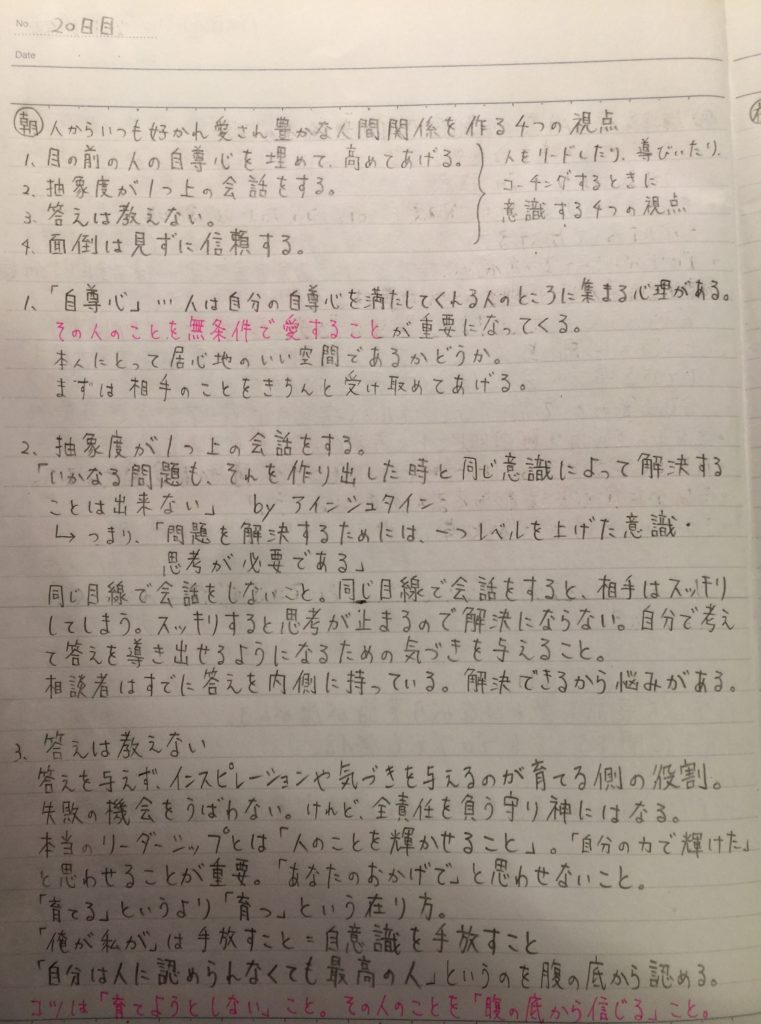 No. 20日目
Date
朝 人からいつも好かれ愛され豊かな人間関係を作る4つの視点
1. 目の前の人の自尊心を埋めて、高めてあげる。
2. 抽象度が1つ上の会話をする。
3. 答えは教えない。
4. 面倒は見ずに信頼する。
人をリードしたり、導びいたり、
コーチングするときに
意識する4つの視点
1. 「自尊心」…人は自分の自尊心を満たしてくれる人のところに集まる心理がある。
その人のことを無条件で愛することが重要になってくる。
本人にとって居心地のいい空間であるかどうか。
まずは相手のことをきちんと受け取めてあげる。
2. 抽象度が1つ上の会話をする。
「いかなる問題も、それを作り出した時と同じ意識によって解決する
ことは出来ない」 by アインシュタイン
↳ つまり、「問題を解決するためには、一つレベルを上げた意識・
思考が必要である」
同じ目線で会話をしないこと。同じ目線で会話をすると、相手はスッキリ
してしまう。スッキリすると思考が止まるので解決にならない。自分で考え
て答えを導き出せるようになるための気づきを与えること。
相談者はすでに答えを内側に持っている。解決できるから悩みがある。
3. 答えは教えない
答えを与えず、インスピレーションや気づきを与えるのが育てる側の役割。
失敗の機会をうばわない。けれど、全責任を負う守り神にはなる。
本当のリーダーシップとは「人のことを輝かせること」。「自分の力で輝けた」
と思わせることが重要。「あなたのおかげで」と思わせないこと。
「育てる」というより「育つ」という在り方。
「俺が私が」は手放すこと=自意識を手放すこと
「自分は人に認められなくても最高の人」というのを腹の底から認める。
コツは「育てようとしない」こと。その人のことを「腹の底から信じる」こと。